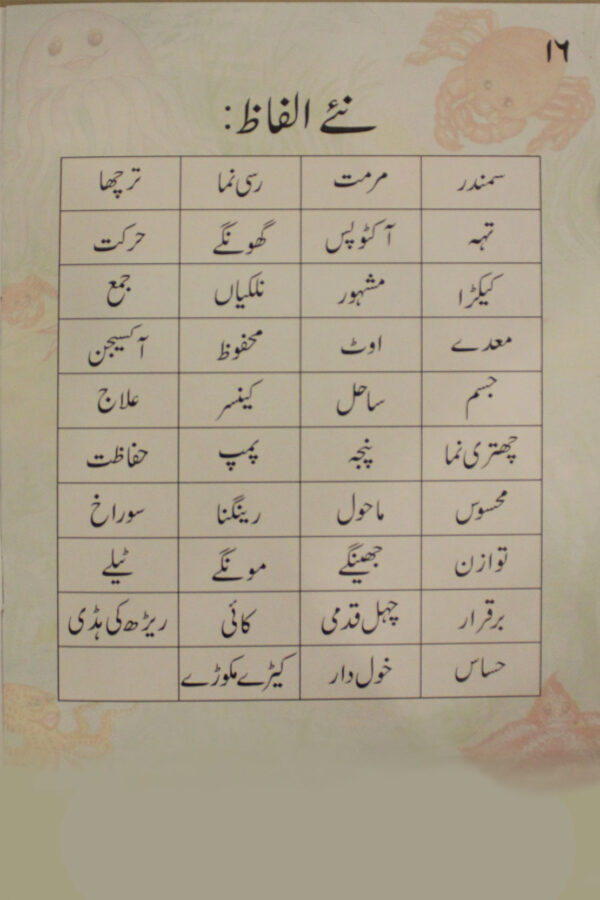 ۱۶
نئے الفاظ:
سمندر مرمت رسی نما ترچھا
تہہ آکٹوپس گھونگے حرکت
کیکڑا مشہور نلکیاں جمع
معدے اوٹ محفوظ آکسیجن
جسم ساحل کینسر علاج
چھتری نما پنجہ پمپ حفاظت
محسوس ماحول رینگنا سوراخ
توازن جھینگے مونگے ٹیلے
برقرار چہل قدمی کائی ریڑھ کی ہڈی
حساس خول دار کیڑے مکوڑے